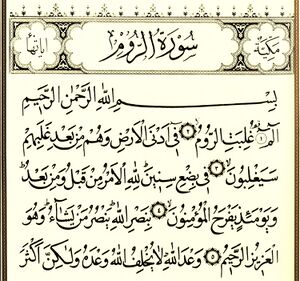 مكية
سُورَةُ الرُّومِ
آياتها
بِسْمِ اللَّهِ الرَّحْمَٰنِ الرَّحِيمِ
الم غُلِبَتِ الرُّومُ فِي أَدْنَى الْأَرْضِ وَهُمْ مِنْ بَعْدِ غَلَبِهِمْ
سَيَغْلِبُونَ فِي بِضْعِ سِنِينَ لِلَّهِ الْأَمْرُ مِنْ قَبْلُ وَمِنْ بَعْدُ
وَيَوْمَئِذٍ يَفْرَحُ الْمُؤْمِنُونَ بِنَصْرِ اللَّهِ يَنْصُرُ مَنْ يَشَاءُ وَهُوَ
الْعَزِيزُ الرَّحِيمُ وَعْدَ اللَّهِ لَا يُخْلِفُ اللَّهُ وَعْدَهُ وَلَٰكِنَّ أَكْثَرَ